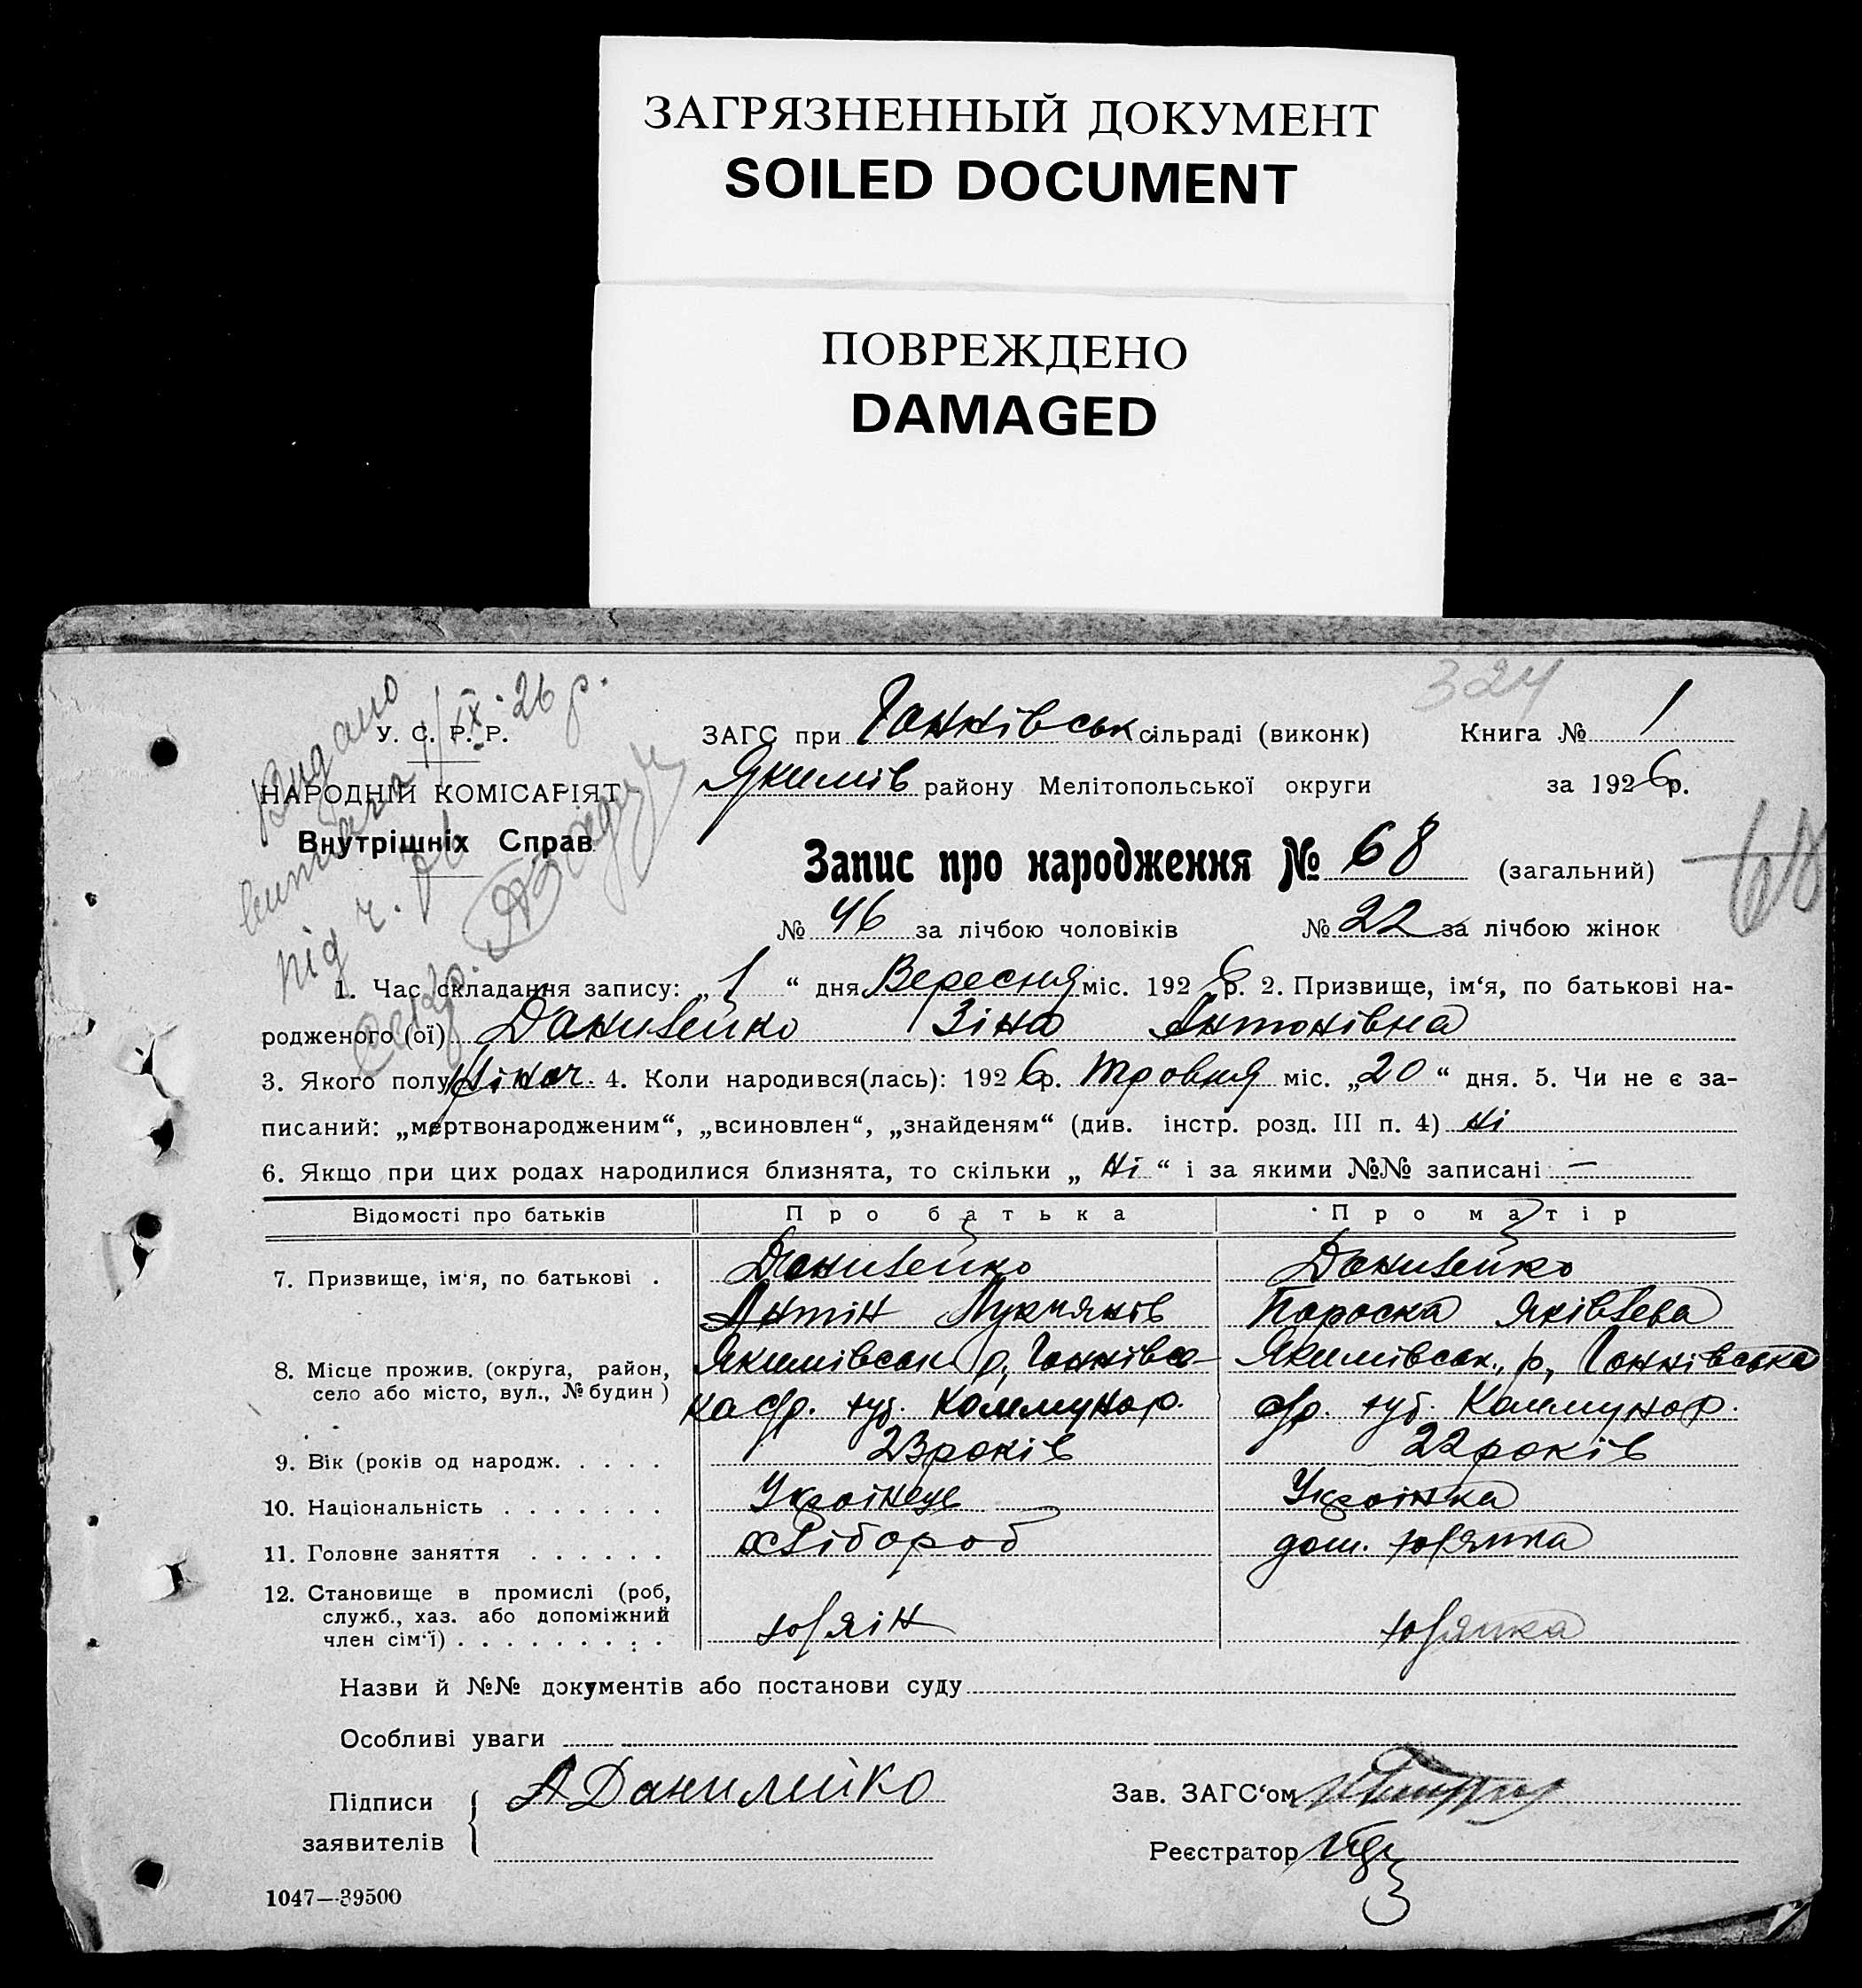 ЗАГРЯЗНЕННЫЙ ДОКУМЕНТ
SOILED DOCUMENT
ПОВРЕЖДЕНО
DAMAGED
324
Видано 1/IX-26 р.
під ч. 76
У. С. Р. Р.
НАРОДНІЙ КОМІСАРІЯТ
Внутрішніх Справ
ЗАГС при Ганнівськ сільраді (виконк) Книга № 1
Якимів району Мелітопольської округи за 1926 р.
Запис про народження № 68 (загальний)
68
№ 46 за лічбою чоловіків № 22 за лічбою жінок
1. Час складання запису: „ 1 “ дня Вересня міс. 1926 р. 2. Призвище, ім‘я, по батькові на-
родженого (ої) Данилейко Зіна Антонівна
3. Якого полу жіноч. 4. Коли народився(лась): 1926 р. Травня міс. „20“ дня. 5. Чи не є за-
писаний: „мертвонародженим“, „всиновлен“, „знайденям“ (див. інстр. розд. III п. 4) ні
6. Якщо при цих родах народилися близнята, то скільки „ ні “ і за якими №№ записані —
Відомості про батьків Про батька Про матір
7. Призвище, ім‘я, по батькові . Данилейко Данилейко
Антін Лукʼянів Параска Яківлева
8. Місце прожив. (округа, район, Якимівськ. р, Ганнівсь- Якимівськ., р, Ганнівська
село або місто, вул., № будин) ка с/р. Коммунар. с/р. Коммунар.
9. Вік (років од народж. . . . . 23 років 22 років
10. Національність . . . . . . . Українець Українка
11. Головне заняття . . . . . . хлібороб дом.
12. Становище в промислі (роб,
служб., хаз. або допоміжний
член сім‘ї) . . . . . . . . .
Назви й №№ документів або постанови суду
Особливі уваги
Підписи А Данилейко Зав. ЗАГС‘ом
заявителів Реєстратор
1047—39500